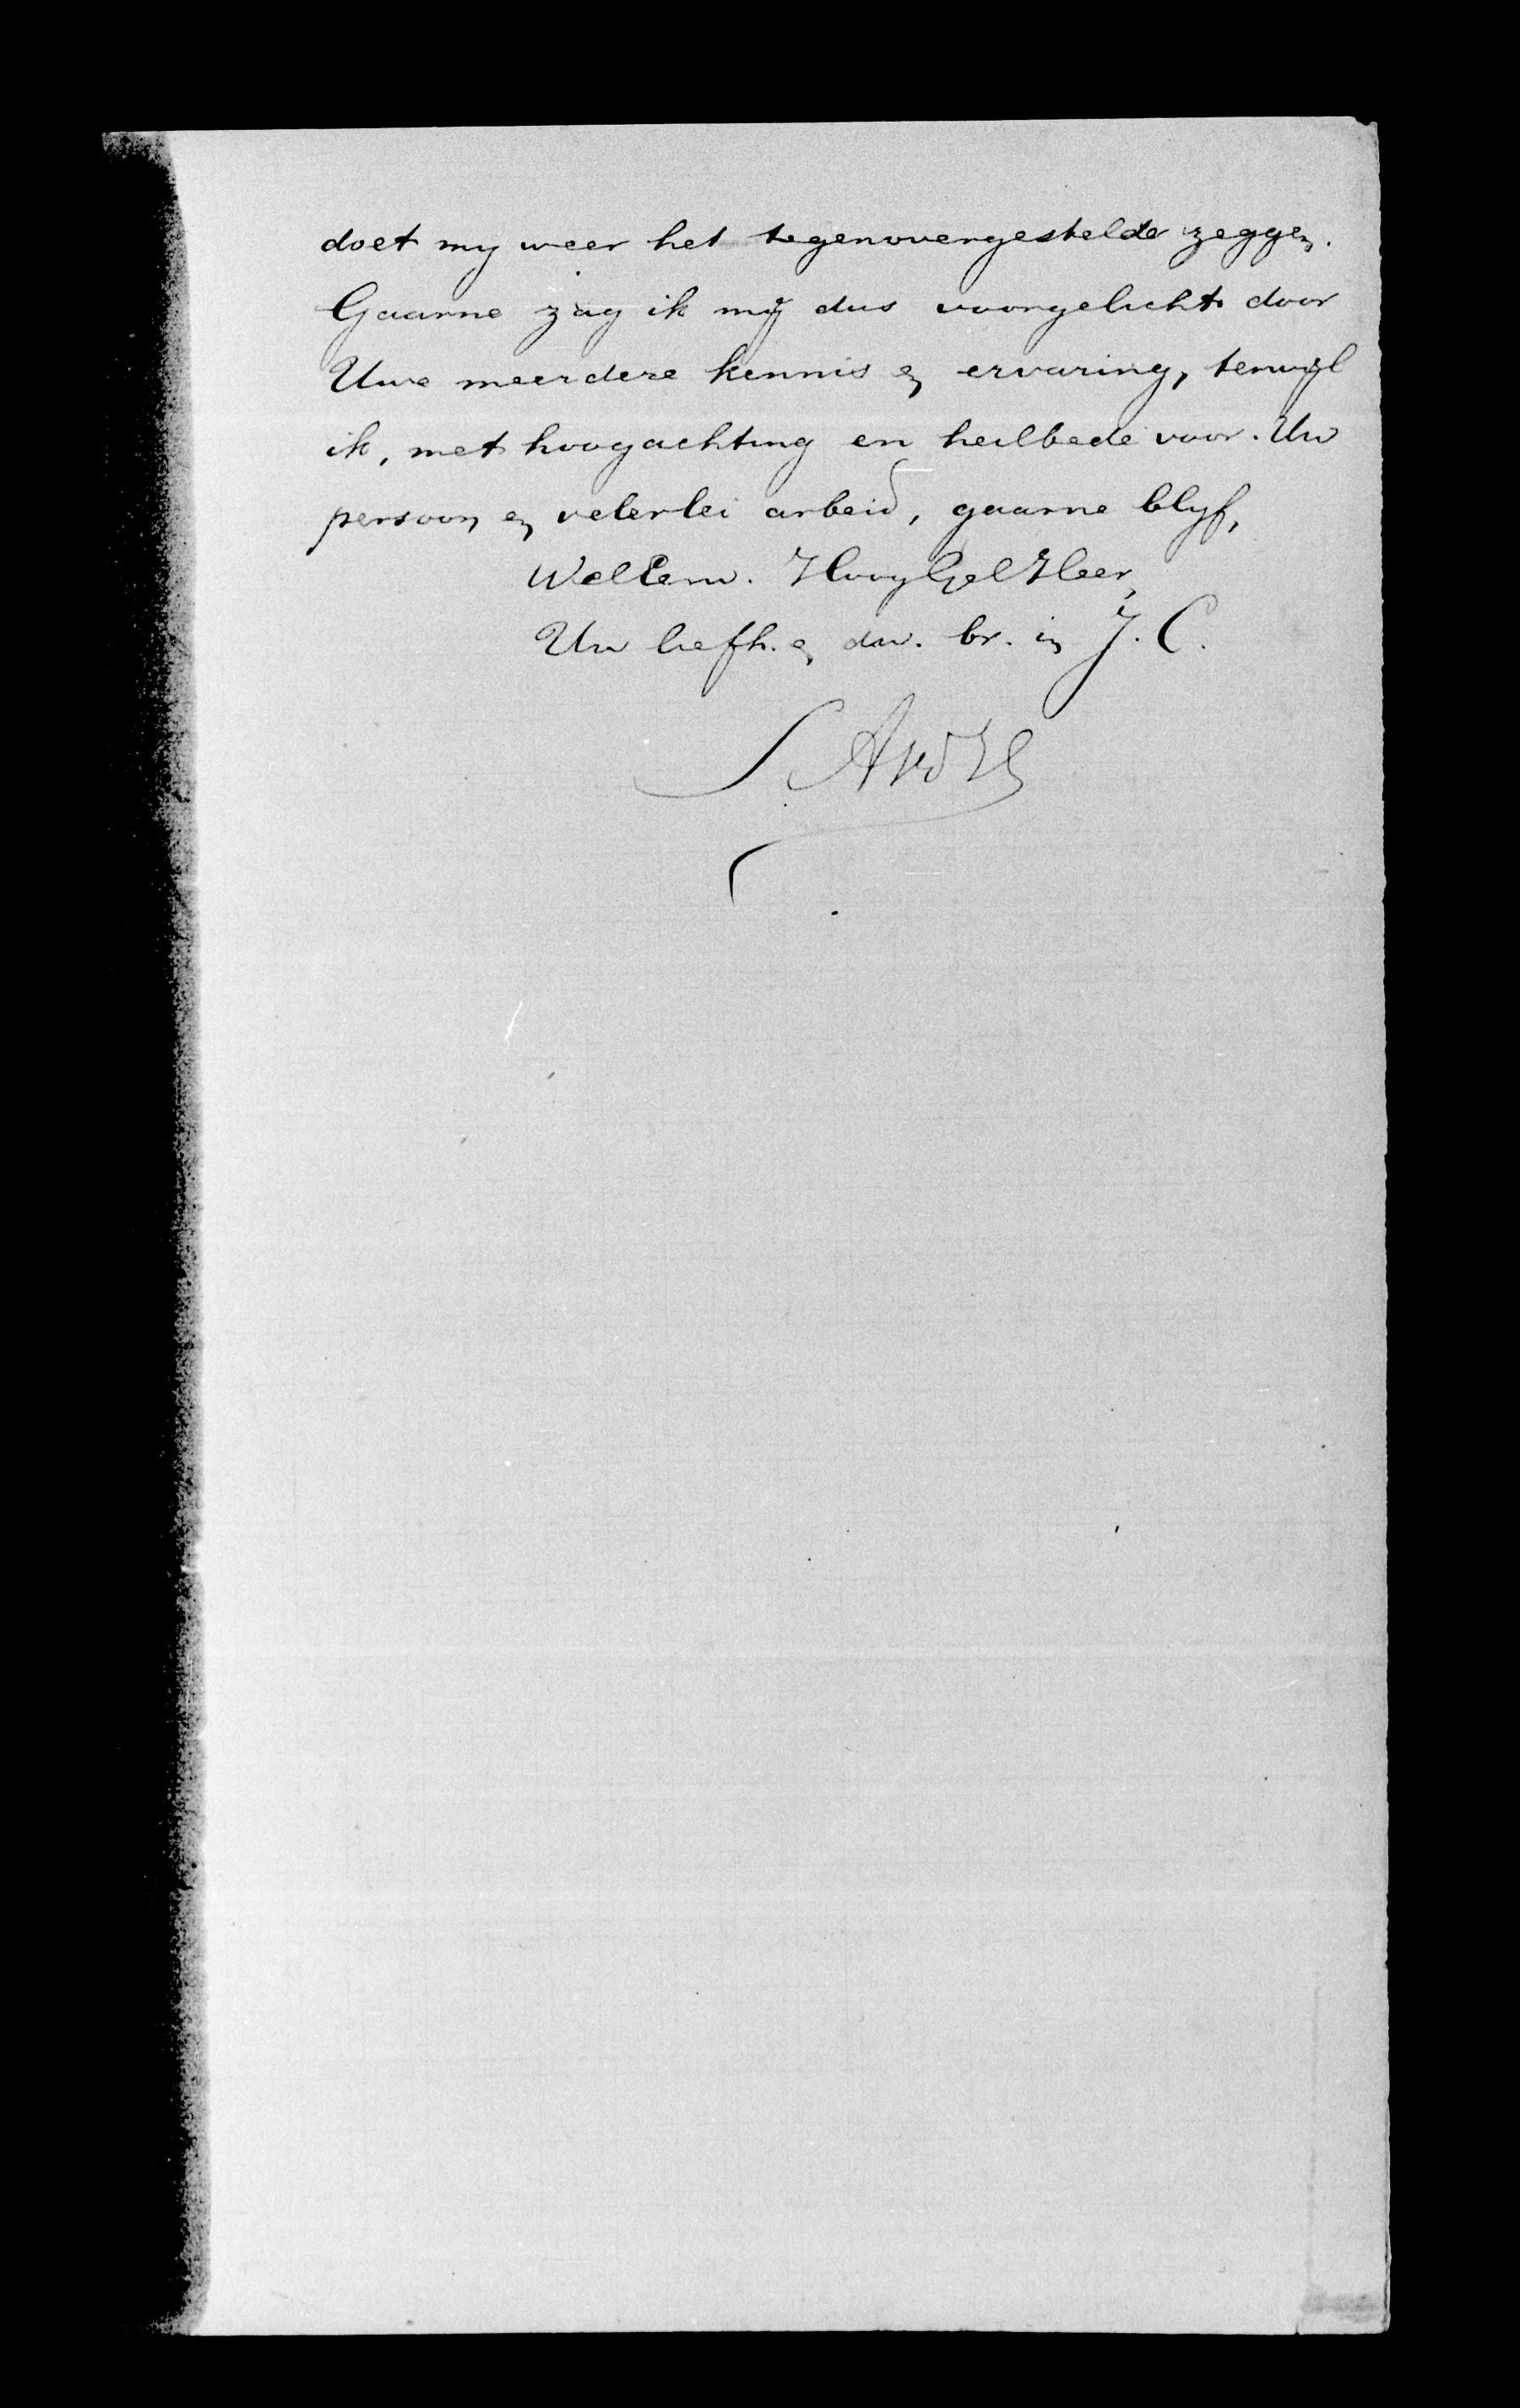 doet my weer het tegenovergestelde zeggen.
Gaarne zag ik mij dus voorgelicht door
Uwe meerdere kennis en ervaring, terwijl
ik, met hoogachting en heilbede voor Uw
persoon en velerlei arbeid, gaarne blyf,
WelEerw. HoogGel Heer,
Uw liefh. en dw. br. in J. C.